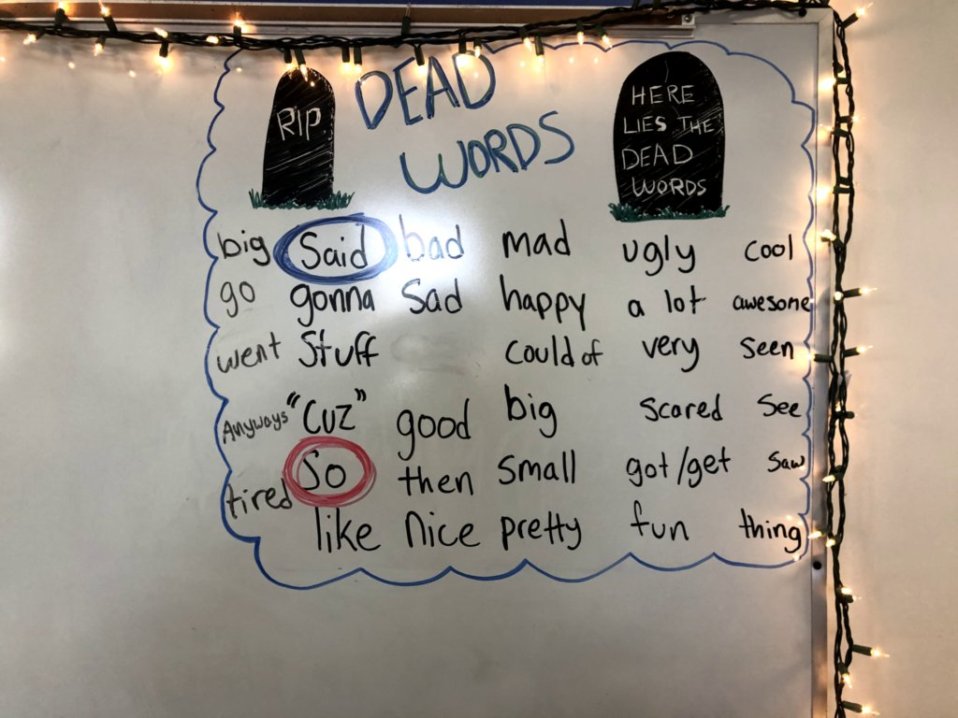 RIP
DEAD
WORDS
HERE
LIES THE
DEAD
WORDS
big Said bad mad ugly cool
go gonna Sad happy a lot awesome
went Stuff could of very seen
Anyways "CUZ" good big scared see
tired So then small got/get saw
like Nice pretty fun thing